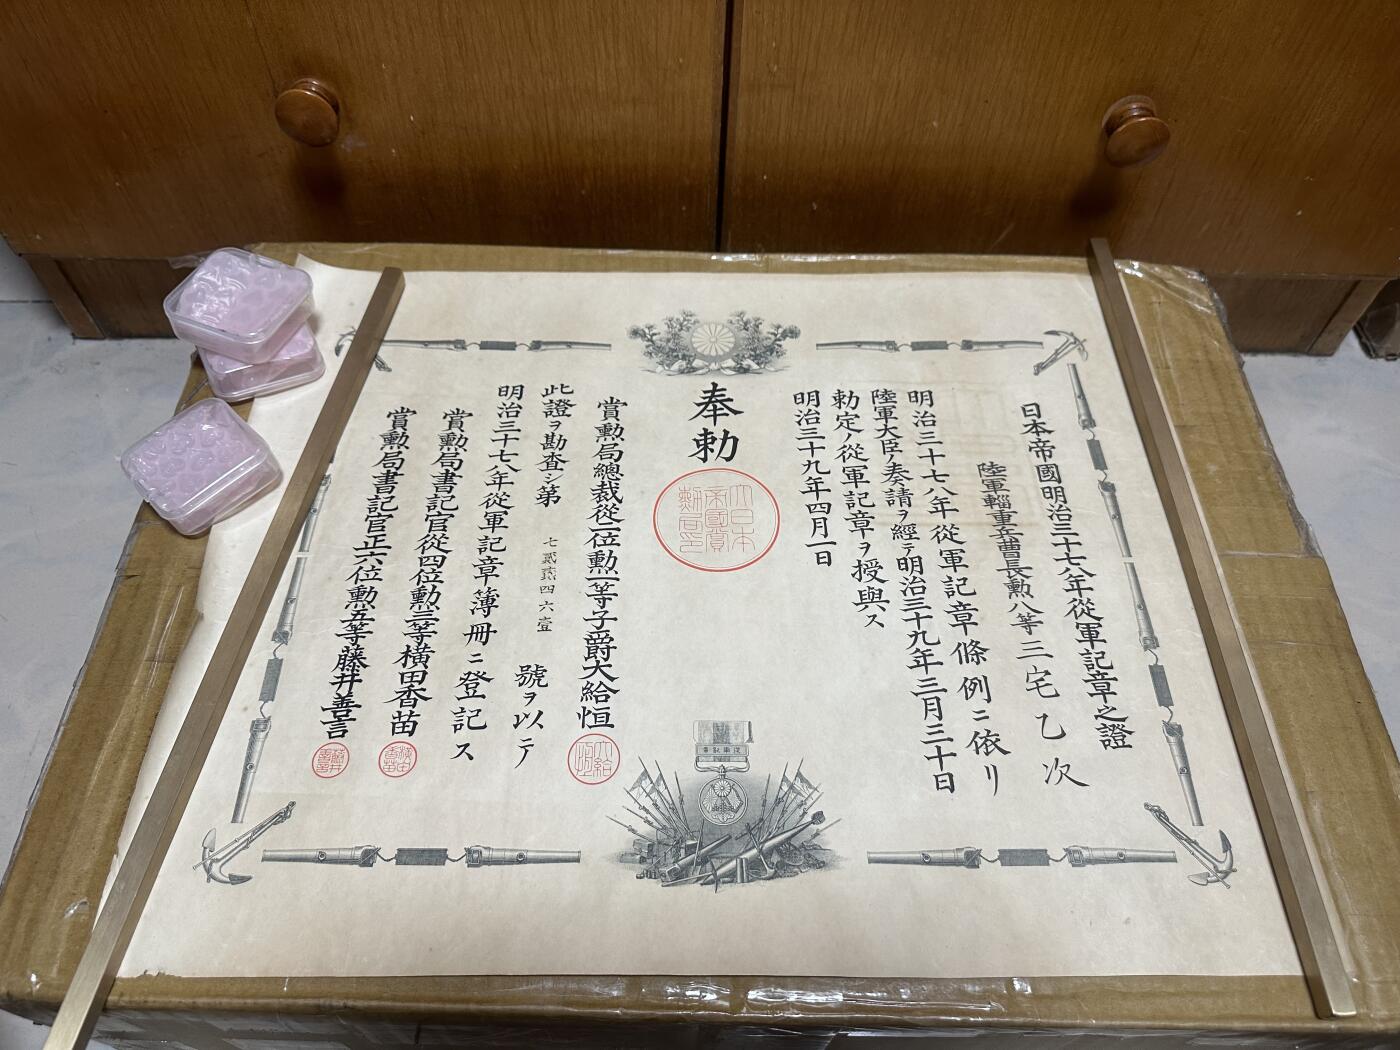 日本帝國明治三十七八年從軍記章之證
陸軍輜重兵曹長勲八等三宅乙次
明治三十七八年從軍記章條例ニ依リ
陸軍大臣ノ奏請ヲ經テ明治三十九年三月三十日
勅定ノ從軍記章ヲ授與ス
明治三十九年四月一日
奉勅
大日本帝國賞勲局印
賞勲局總裁從二位勲一等子爵大給恒
此證ヲ勘査シ第七貳貳四六壹號ヲ以テ
明治三十七八年從軍記章簿冊ニ登記ス
賞勲局書記官從四位勲三等横田香苗
賞勲局書記官正六位勲五等藤井善言
從軍記章